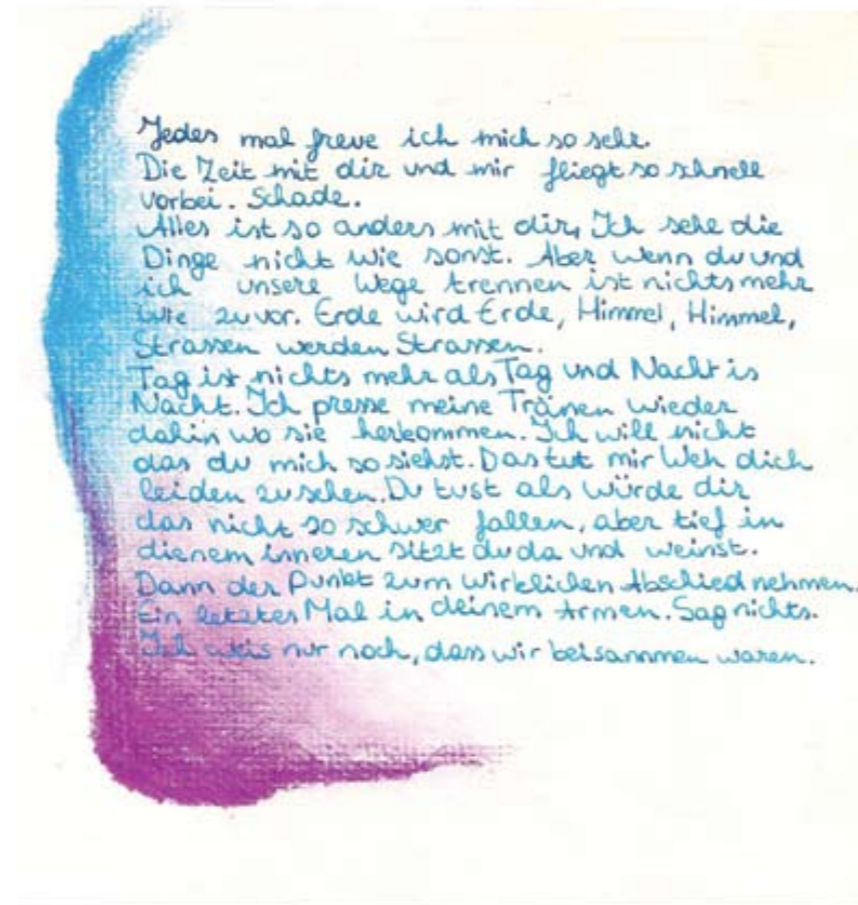 Jedes mal freue ich mich so sehr.
Die Zeit mit dir und mir fliegt so schnell
vorbei. Schade.
Alles ist so anders mit dir, Ich sehe die
Dinge nicht wie sonst. Aber wenn du und
ich unsere Wege trennen ist nichts mehr
wie zuvor. Erde wird Erde, Himmel, Himmel,
Strassen werden Strassen.
Tag ist nichts mehr als Tag und Nacht is
Nacht. Ich presse meine Tränen wieder
dahin wo sie herkommen. Ich will nicht
das du mich so siehst. Das tut mir Weh dich
leiden zu sehen. Du tust als würde dir
das nicht so schwer fallen, aber tief in
dienem inneren sitzt du da und weinst.
Dann der Punkt zum wirklichen Abschied nehmen.
Ein letztes Mal in deinem Armen. Sag nichts.
Ich weis nur noch, dass wir beisammen waren.